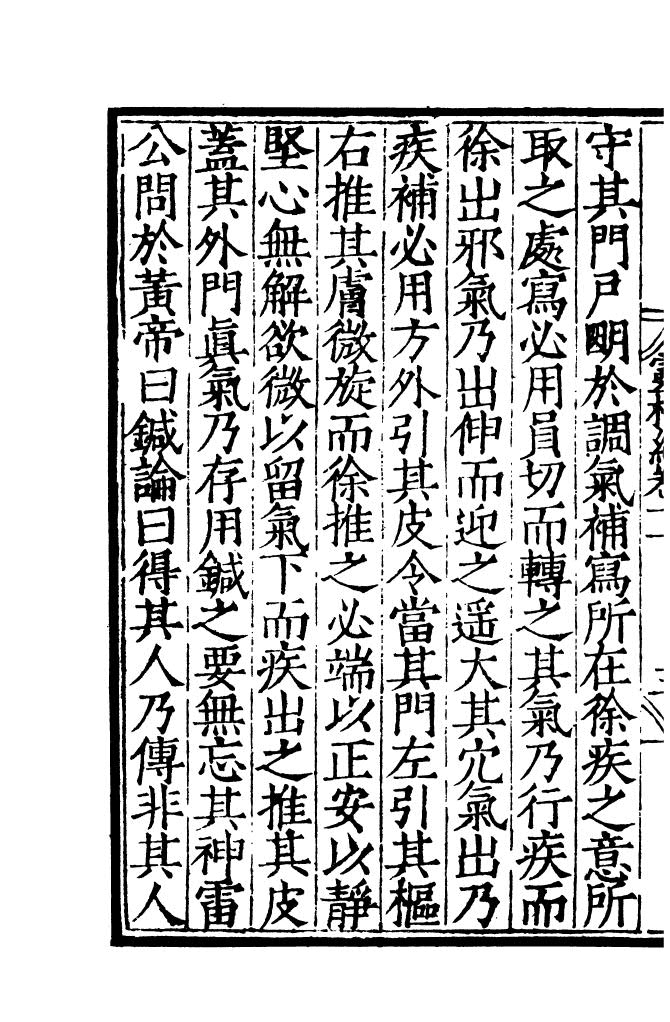 守其門戶明於調氣補寫所在徐疾之意所
取之處寫必用員切而轉之其氣乃行疾而
徐出邪氣乃出伸而迎之遥大其穴氣出乃
疾補必用方外引其皮令當其門左引其樞
右推其膚微旋而徐推之必端以正安以靜
堅心無解欲微以留氣下而疾出之推其皮
蓋其外門眞氣乃存用鍼之要無忘其神雷
公問於黃帝曰鍼論曰得其人乃傳非其人